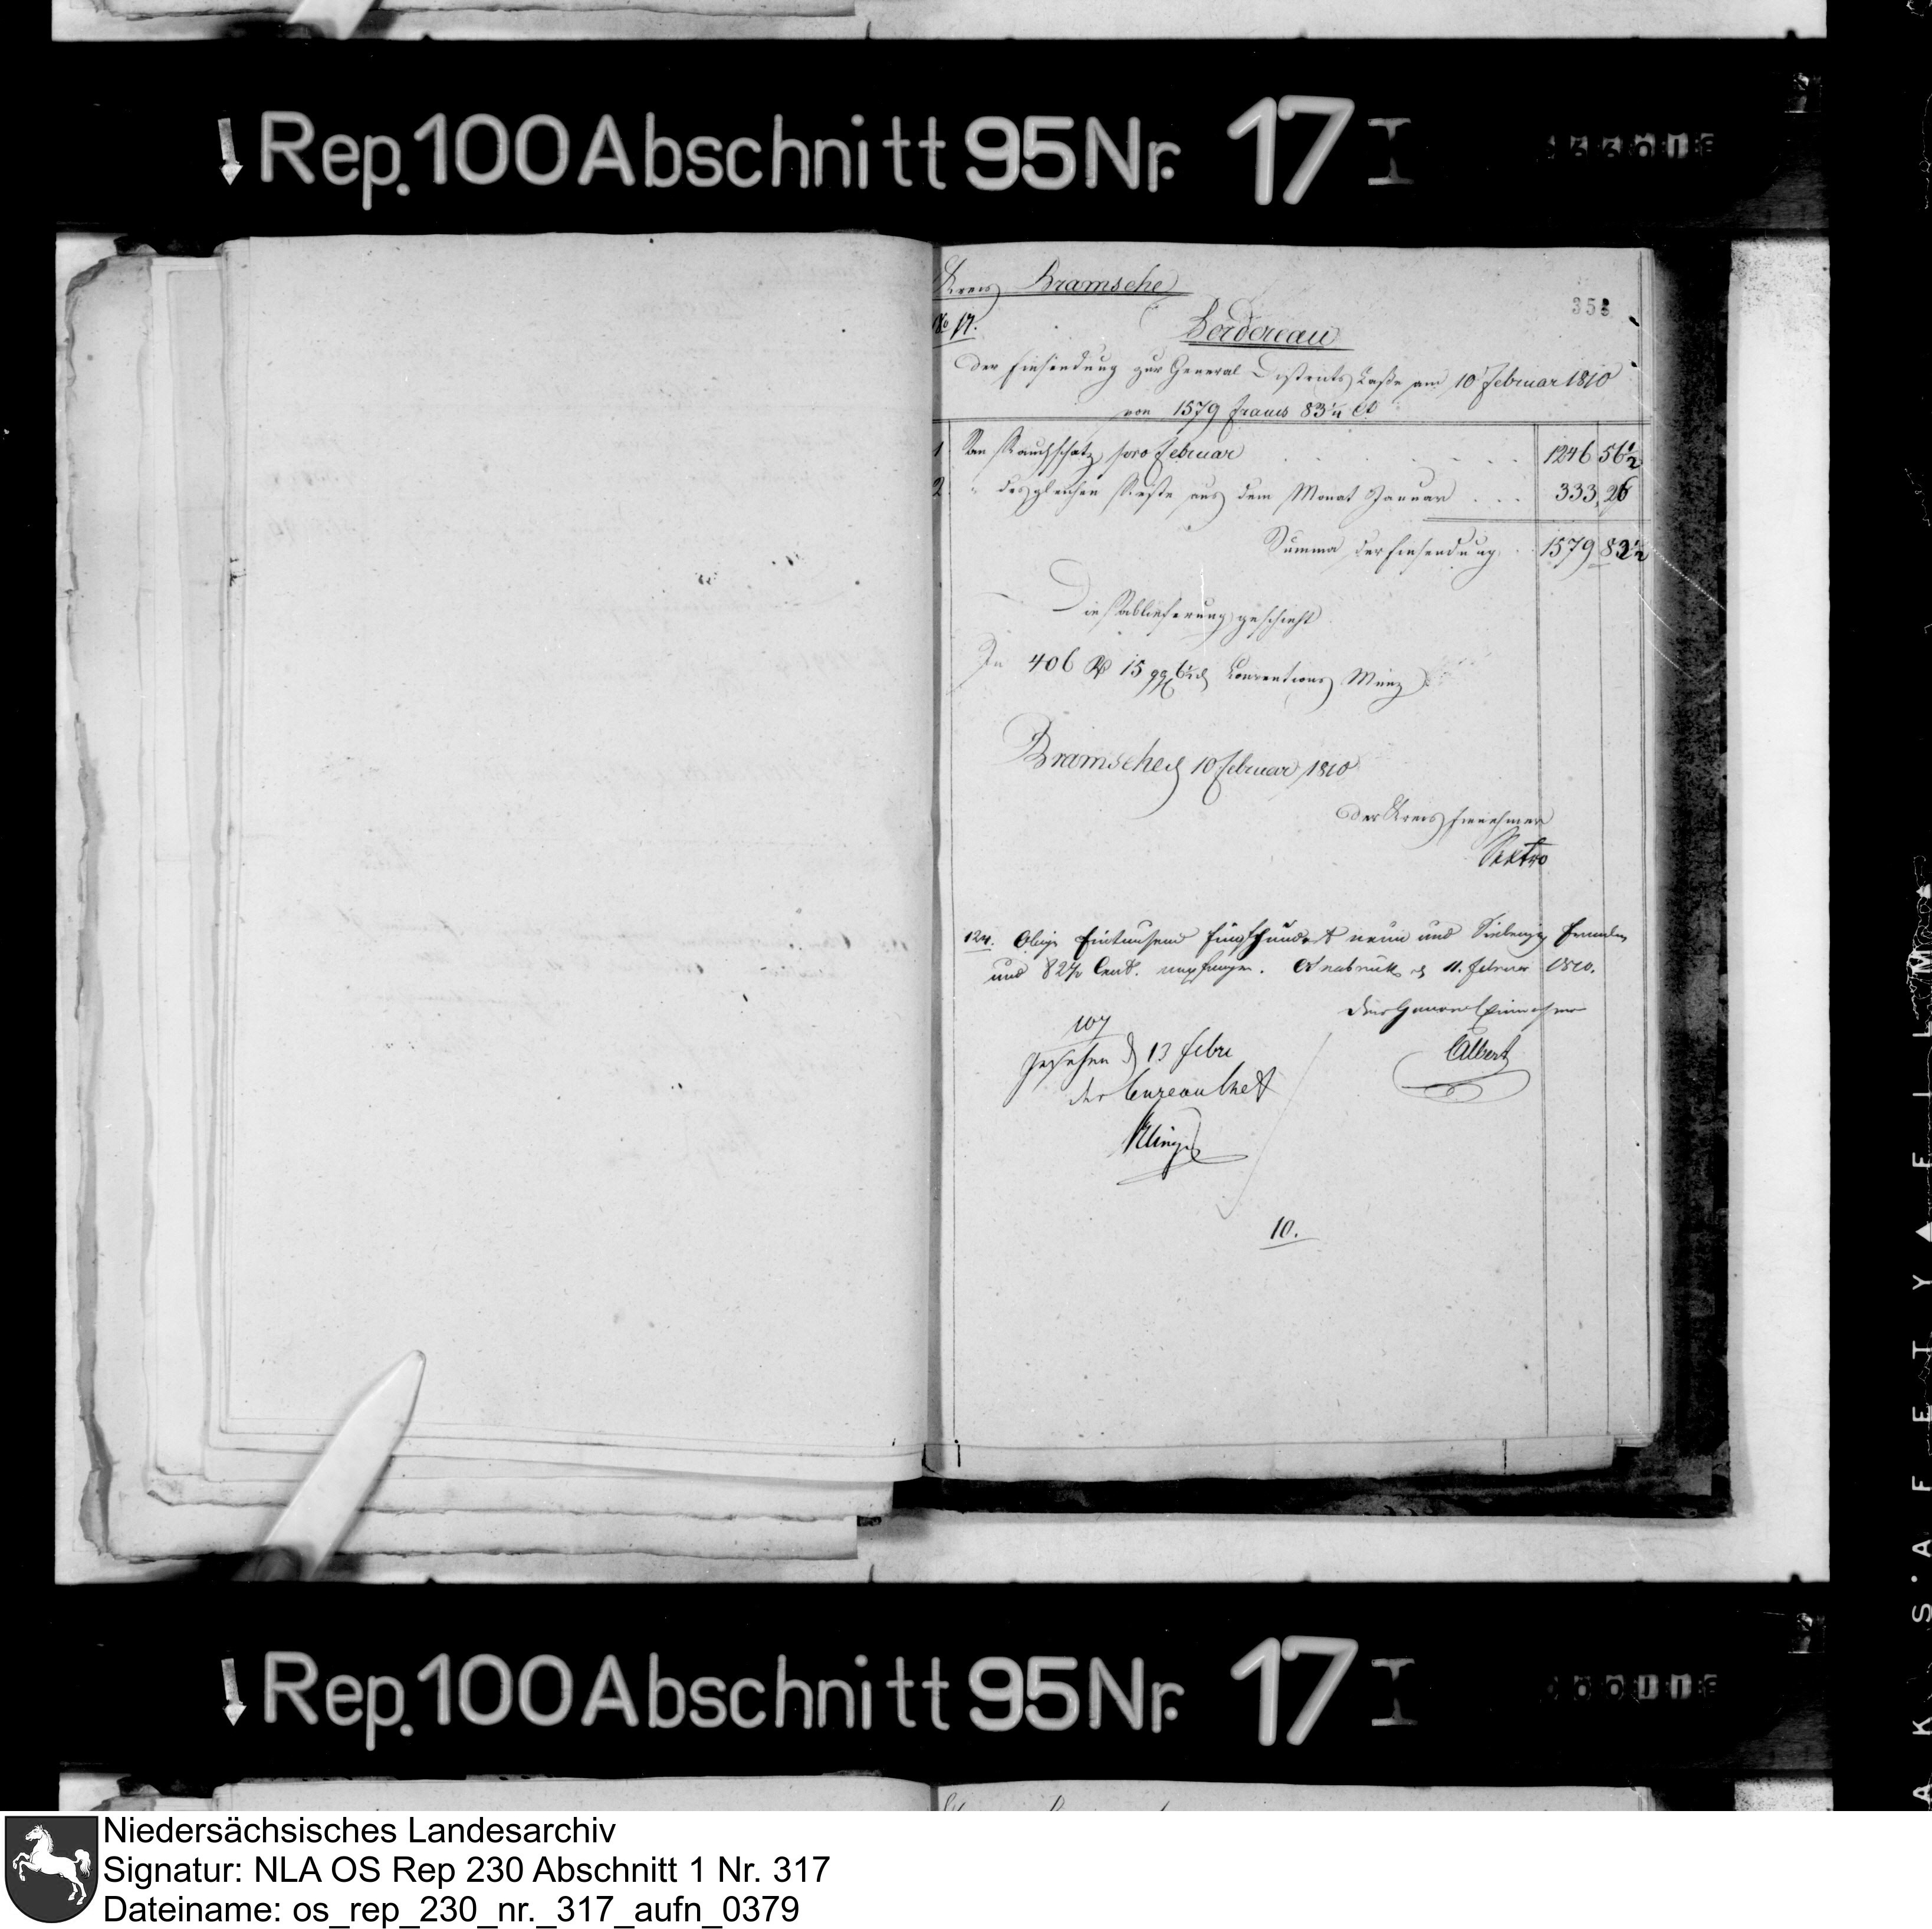 Rep. 100 Abschnitt 95 Nr. 17 I
Kreis Bramsche
358
No 17.
Bordereau
der Einsendung zur General Districts Casse am 10 Februar 1810
von 1579 Francs 83½ Ct
1 An Rauchschatz pro Februar . . . . . . 1246 56½
2 " desgleichen Reste aus dem Monat Januar . . . 333 26
Summa der Einsendung . 1579 82½
Die Ablieferung geschieht
In 406 Rt 15 ggr Conventions Münz
Bramsche d 10 Februar 1810
Der Kreis Einnehmer
Sextro
124. Obige Eintausend fünfhundert neun und Siebenzig Franken
und 82½ Cent. empfangen. Osnabrück d 11. Februar 1810.
Der General Einnehmer
107
Gesehen d 13 Febr
Albert
der Bureau Chef
Klinge
10.
Rep. 100 Abschnitt 95 Nr. 17 I
Niedersächsisches Landesarchiv
Signatur: NLA OS Rep 230 Abschnitt 1 Nr. 317
Dateiname: os_rep_230_nr._317_aufn_0379